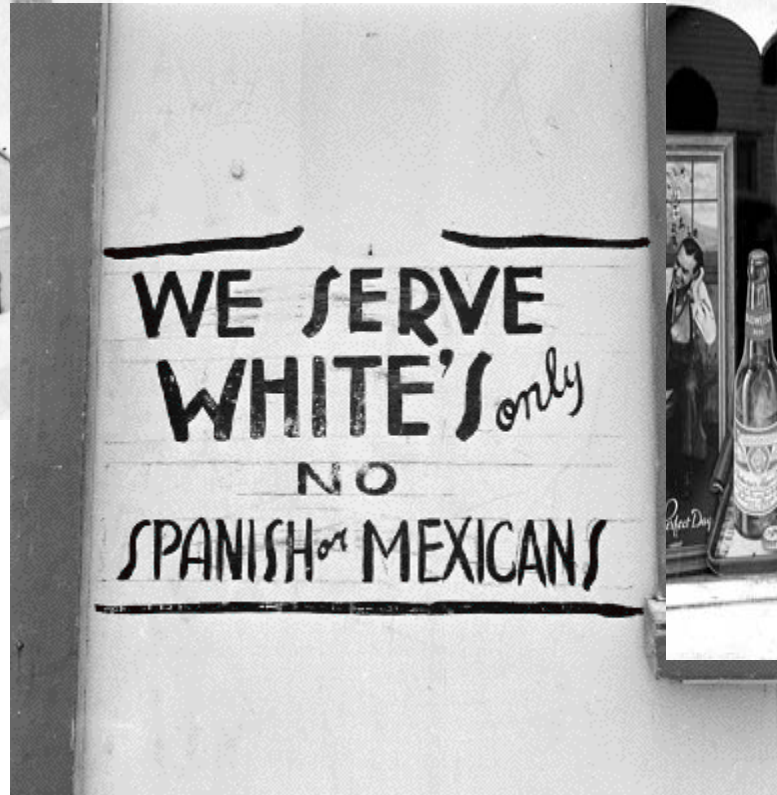 WE SERVE
WHITE'S only
NO
SPANISH or MEXICANS
Perfect Day